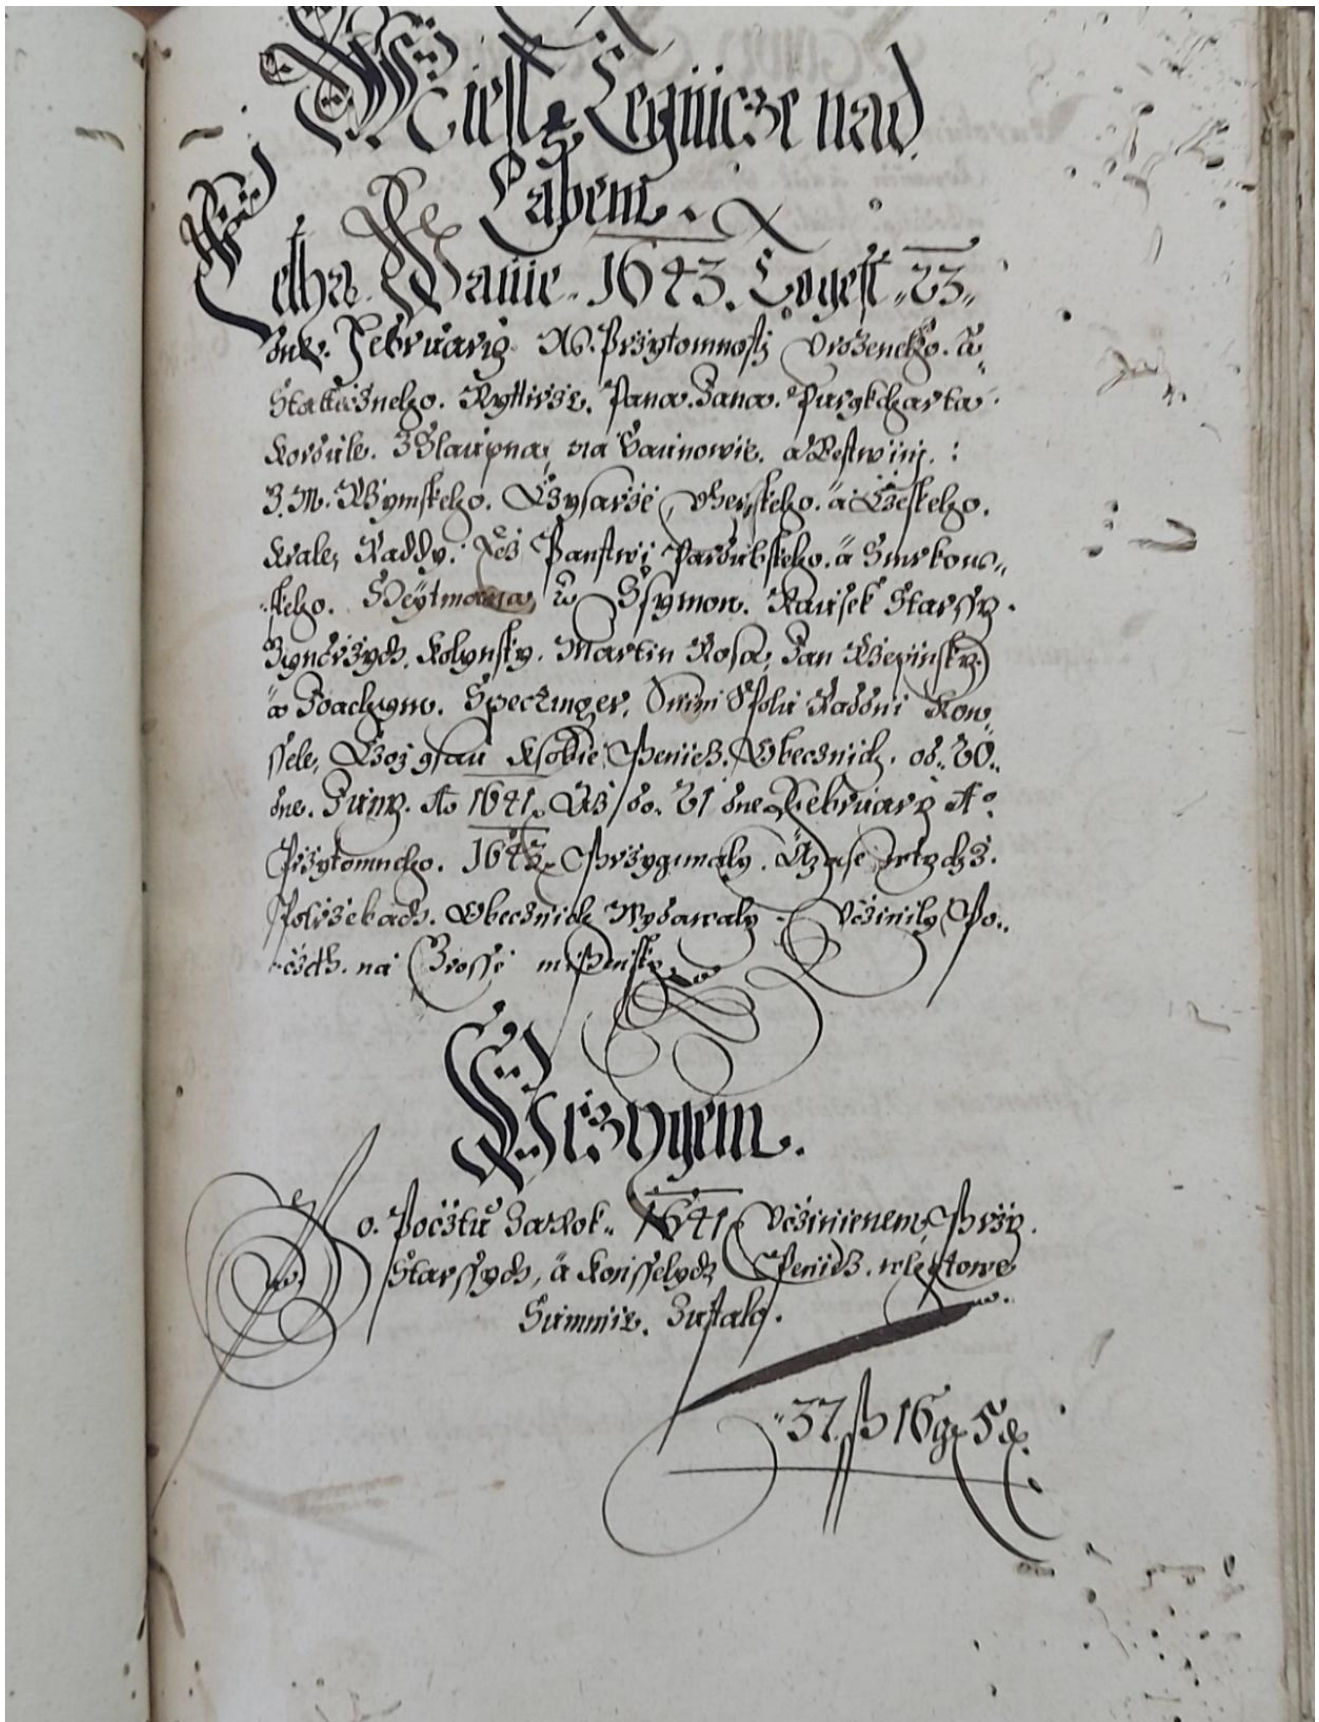 W Miestie Tegnicze nad
Labem.
Letha Panie 1643. Togest 23
dne. Februarig. W Przytomnosti Vrozeneho. a
Stateczneho. Rytirze. Pana. Jana. Purgkharta
Kordule. Z Slaupna, na Baunowie. a Bestwinj. :
J. M. Rzymskeho. Czysarze, Vherskeho. a Czeskeho.
Krale, Raddy. Panstwi Pardubskeho. a Smrkow„
skeho. Heytmana, a Ssymon. Kausek Starssy.
Jyndrzych. Kolynsky. Martin Rosa, Jan Rzepinsky
a Joachym. Speczinger. Spolu Raddni Kon„
ssele, Czoz gsau Ksobie Peniez. Obecznich. od. 20.
dne. Juny. Ao 1641. Az do. 21 dne February Ao
Przytomneho. 1643. Przygimaly. A zase
Potrzebach. Obecznich Wydawaly. Vczinily Po„
czth. na Grosse missenske
Przygem.
Po. Pocztu Za Rok. 1641 Vczinienem, Przy.
Starssych, a Konsselych Peniez. wteto
Summie. Zustalo.
37 ß 16 gr 5 d.